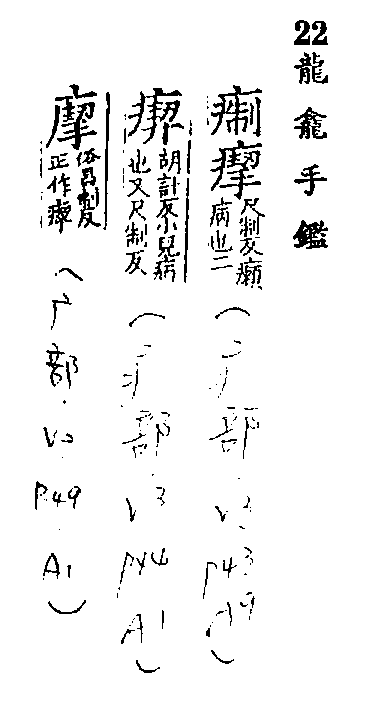 22 龍龕手鑑
痸 尺制反癲
病也二
(疒部 V3 P43 A9)
胡計反小兒病
也又尺制反
(疒部 V3 P44 A1)
俗昌制反
正作
(广部 V2 P49 A1)